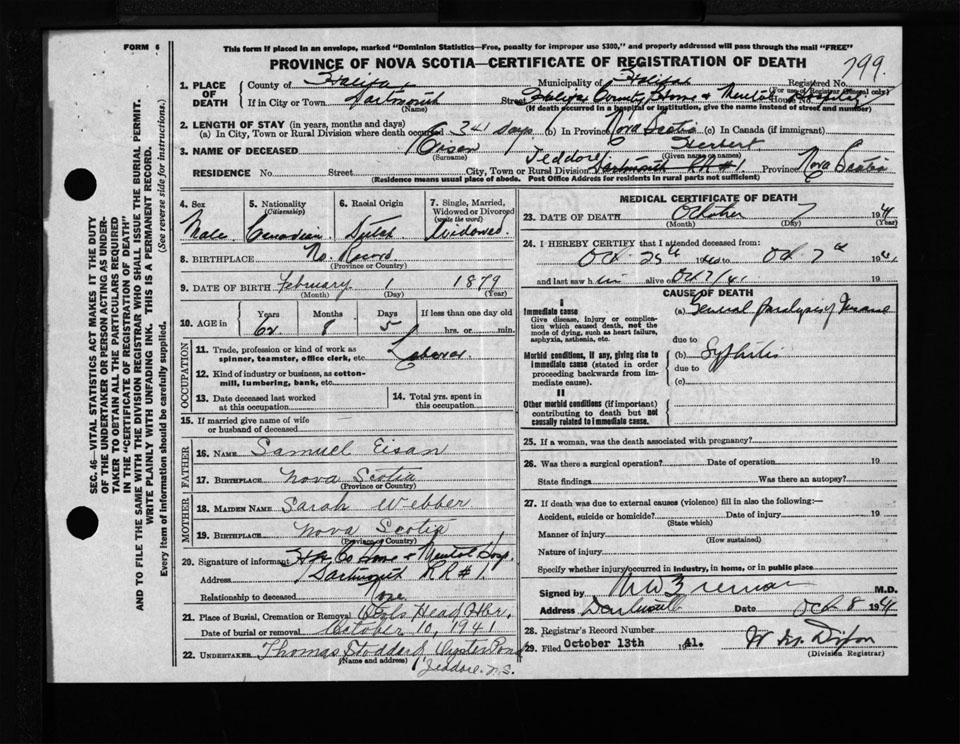 FORM 6
This form if placed in an envelope, marked "Dominion Statistics—Free, penalty for improper use $300," and properly addressed will pass through the mail "FREE"
PROVINCE OF NOVA SCOTIA—CERTIFICATE OF REGISTRATION OF DEATH
799.
1. PLACE OF DEATH
County of Halifax Municipality of Halifax Registered No.
(For use of Registrar General only)
If in City or Town Dartmouth Street Halifax County Home & Mental Hospital House No.
(Name) (If death occurred in a hospital or institution, give the name instead of street and number)
2. LENGTH OF STAY (in years, months and days)
(a) In City, Town or Rural Division where death occurred 341 Days (b) In Province Nova Scotia (c) In Canada (if immigrant)
3. NAME OF DECEASED Eisan Herbert
(Surname) (Given name or names)
Jeddore
RESIDENCE No. Street City, Town or Rural Division Dartmouth RR #1 Province Nova Scotia
(Residence means usual place of abode. Post Office Address for residents in rural parts not sufficient)
4. Sex Male
5. Nationality (Citizenship) Canadian
6. Racial Origin Dutch
7. Single, Married, Widowed or Divorced (write the word) Widowed
8. BIRTHPLACE No Record
(Province or Country)
9. DATE OF BIRTH February 1 1879
(Month) (Day) (Year)
10. AGE in Years Months Days If less than one day old
62 8 5 hrs. or min.
OCCUPATION
11. Trade, profession or kind of work as spinner, teamster, office clerk, etc. Laborer
12. Kind of industry or business, as cotton-mill, lumbering, bank, etc.
13. Date deceased last worked at this occupation
14. Total yrs. spent in this occupation
15. If married give name of wife or husband of deceased
FATHER
16. NAME Samuel Eisan
17. BIRTHPLACE Nova Scotia
(Province or Country)
MOTHER
18. MAIDEN NAME Sarah Webber
19. BIRTHPLACE Nova Scotia
(Province or Country)
20. Signature of informant Hfx Co Home & Mental Hosp.
Address Dartmouth RR #1
Relationship to deceased None
21. Place of Burial, Cremation or Removal Head Hbr.
Date of burial or removal October 10, 1941
22. UNDERTAKER Thomas Stoddard Oyster Pond
(Name and address) Jeddore, N.S.
MEDICAL CERTIFICATE OF DEATH
23. DATE OF DEATH October 7 1941
(Month) (Day) (Year)
24. I HEREBY CERTIFY that I attended deceased from:
Oct. 25th 1940 to Oct 7th 1941
and last saw him alive on Oct 7/41 19
CAUSE OF DEATH
I
Immediate cause
Give disease, injury or complication which caused death, not the mode of dying, such as heart failure, asphyxia, asthenia, etc.
(a) General Paralysis of Insane
due to
Morbid conditions, if any, giving rise to immediate cause (stated in order proceeding backwards from immediate cause).
(b) Syphilis
due to
(c)
II
Other morbid conditions (if important) contributing to death but not causally related to immediate cause.
25. If a woman, was the death associated with pregnancy?
26. Was there a surgical operation? Date of operation 19
State findings Was there an autopsy?
27. If death was due to external causes (violence) fill in also the following:—
Accident, suicide or homicide? Date of injury 19
(State which)
Manner of injury
(How sustained)
Nature of injury
Specify whether injury occurred in industry, in home, or in public place
Signed by M.D.
Address Dartmouth Date Oct 8 1941
28. Registrar's Record Number
29. Filed October 13th 1941.
(Division Registrar)
SEC. 46—VITAL STATISTICS ACT MAKES IT THE DUTY
OF THE UNDERTAKER OR PERSON ACTING AS UNDER-
TAKER TO OBTAIN ALL THE PARTICULARS REQUIRED
IN THE "CERTIFICATE OF REGISTRATION OF DEATH"
AND TO FILE THE SAME WITH THE DIVISION REGISTRAR WHO SHALL ISSUE THE BURIAL PERMIT.
WRITE PLAINLY WITH UNFADING INK. THIS IS A PERMANENT RECORD.
Every item of information should be carefully supplied. (See reverse side for instructions.)